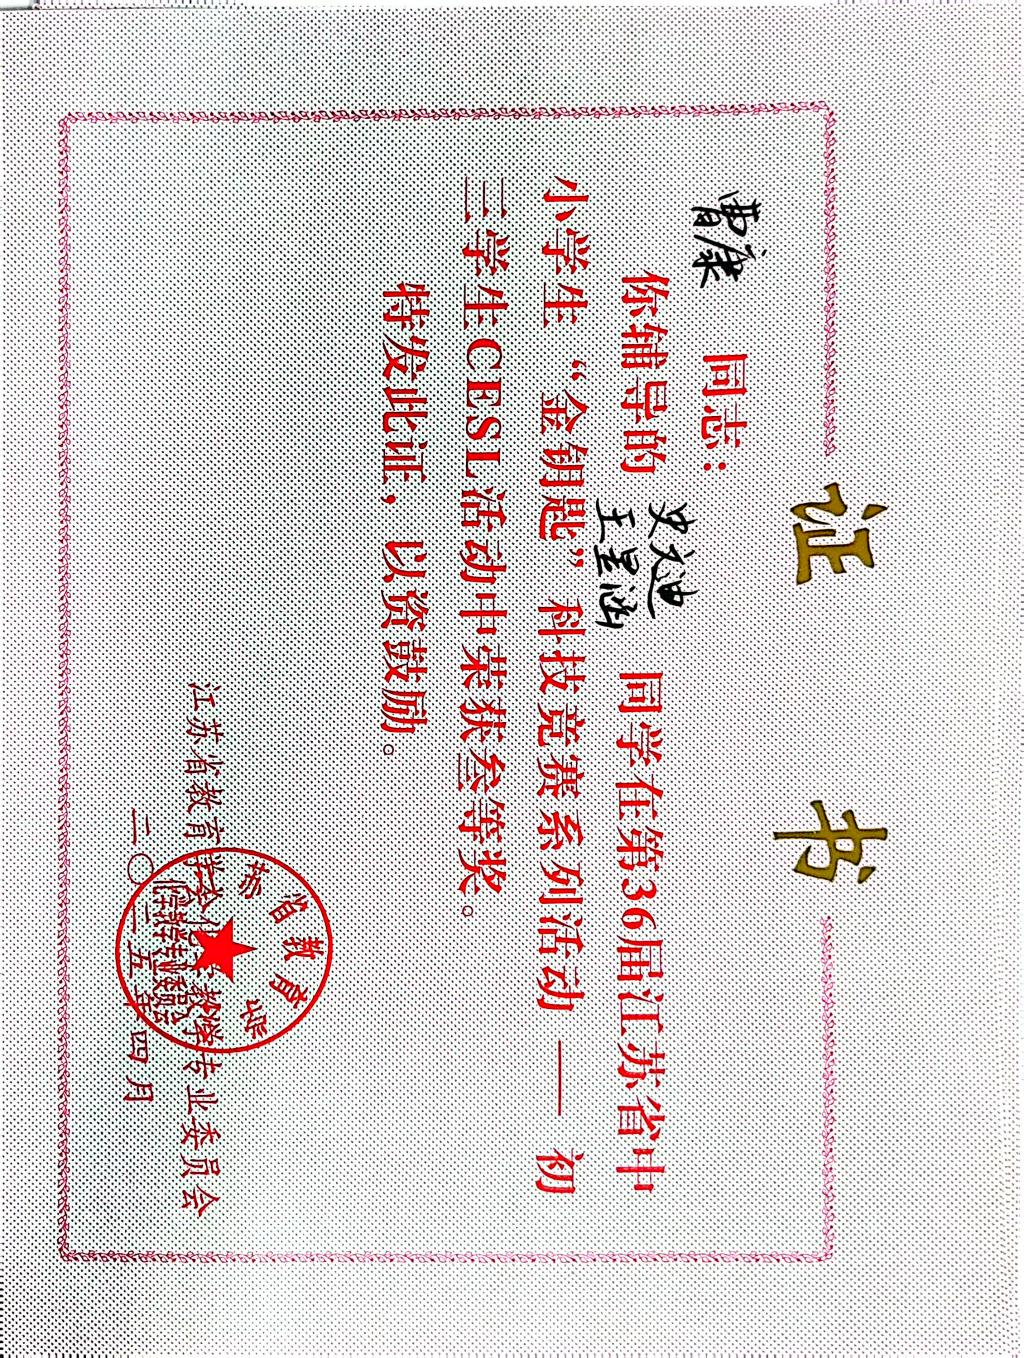 证 书
曹康 同志：
你辅导的 史文迪 同学在第36届江苏省中
王呈涵
小学生“金钥匙”科技竞赛系列活动——初
三学生CESL活动中荣获叁等奖。
特发此证，以资鼓励。
江苏省教育学会化学教学专业委员会
二〇二五年四月
苏省教育学